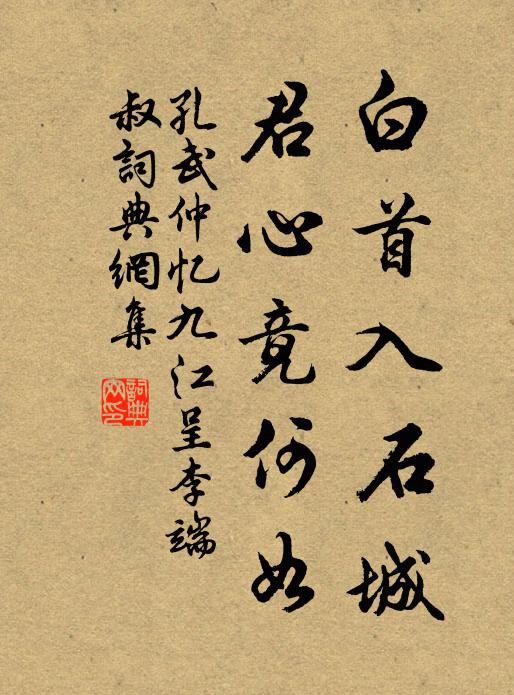 白首入石城
君心竟何如
孔武仲忆九江呈李端
叔詞典網集
詞典網印